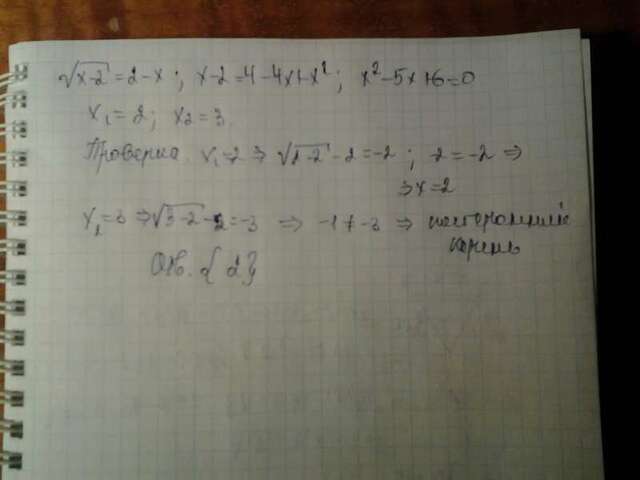 √x-2 = 2-x; x-2=4-4x+x²; x²-5x+6=0
x₁=2; x₂=3.
Проверка. x₁=2 ⇒ √2-2 -2=-2; -2=-2 ⇒
⇒ x=2
x₂=3 ⇒ √3-2 -2=-3 ⇒ -1≠-3 ⇒ посторонний
корень
Отв. {2}